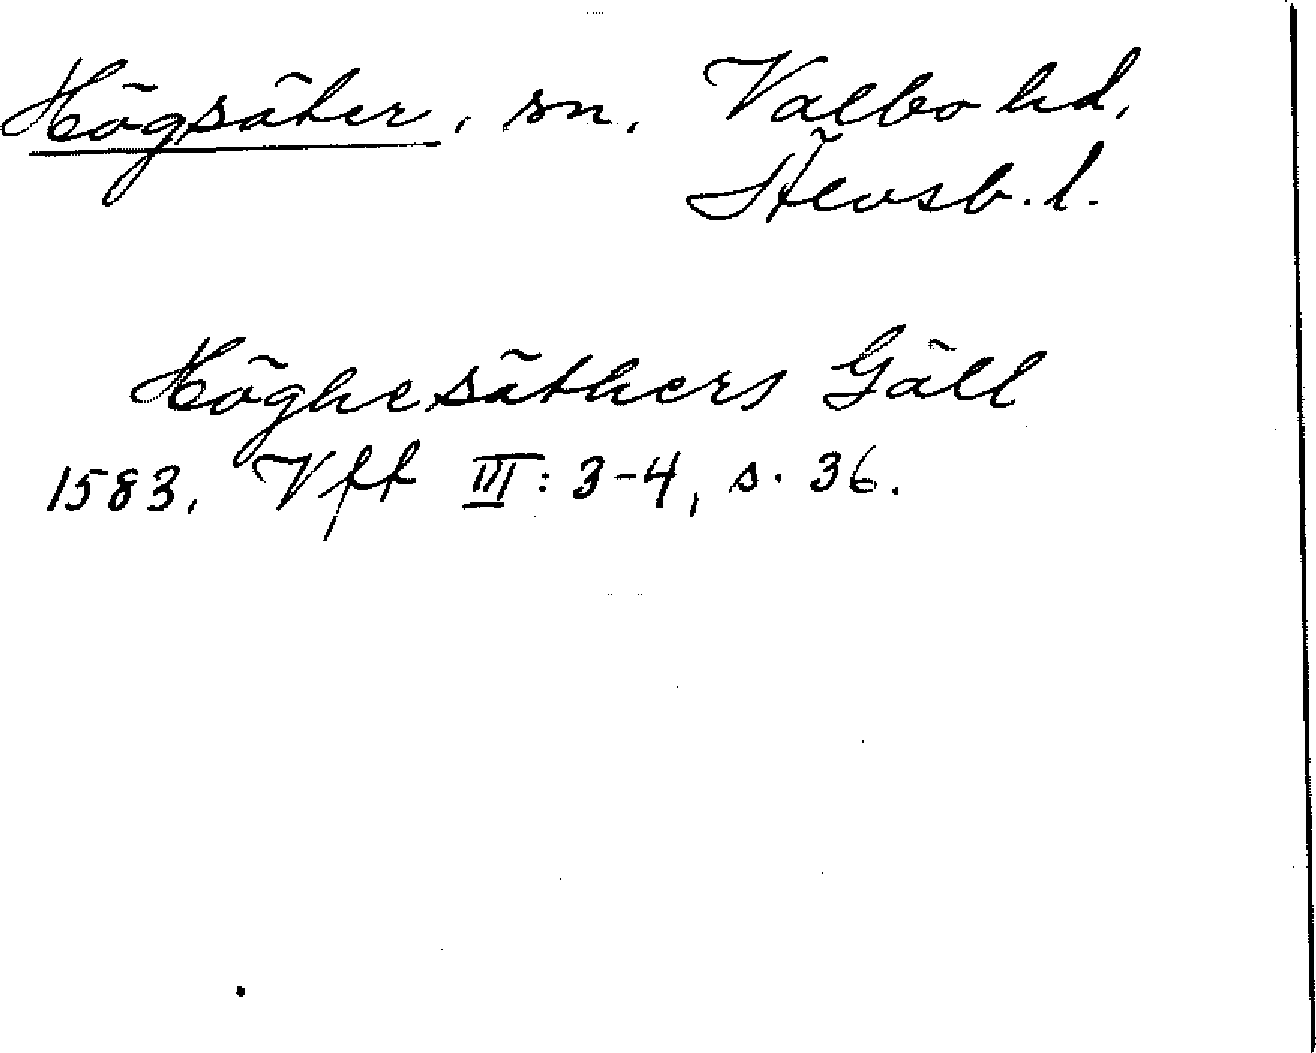 Högsäter, sn, Valbo hd,
Älvsb. l.
Höghesäthers Gäll
1583, Vft III: 3-4, s. 36.